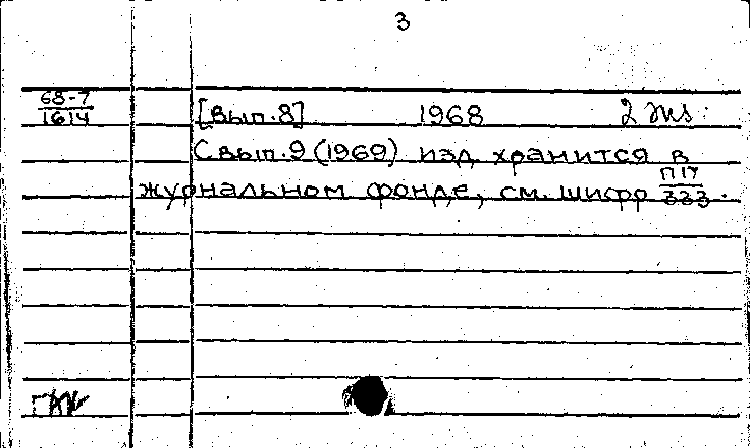 3
68-7
1614
[вып. 8] 1968 2 экз.
С вып. 9 (1969) изд. хранится в
журнальном фонде, см. шифр П17
333.